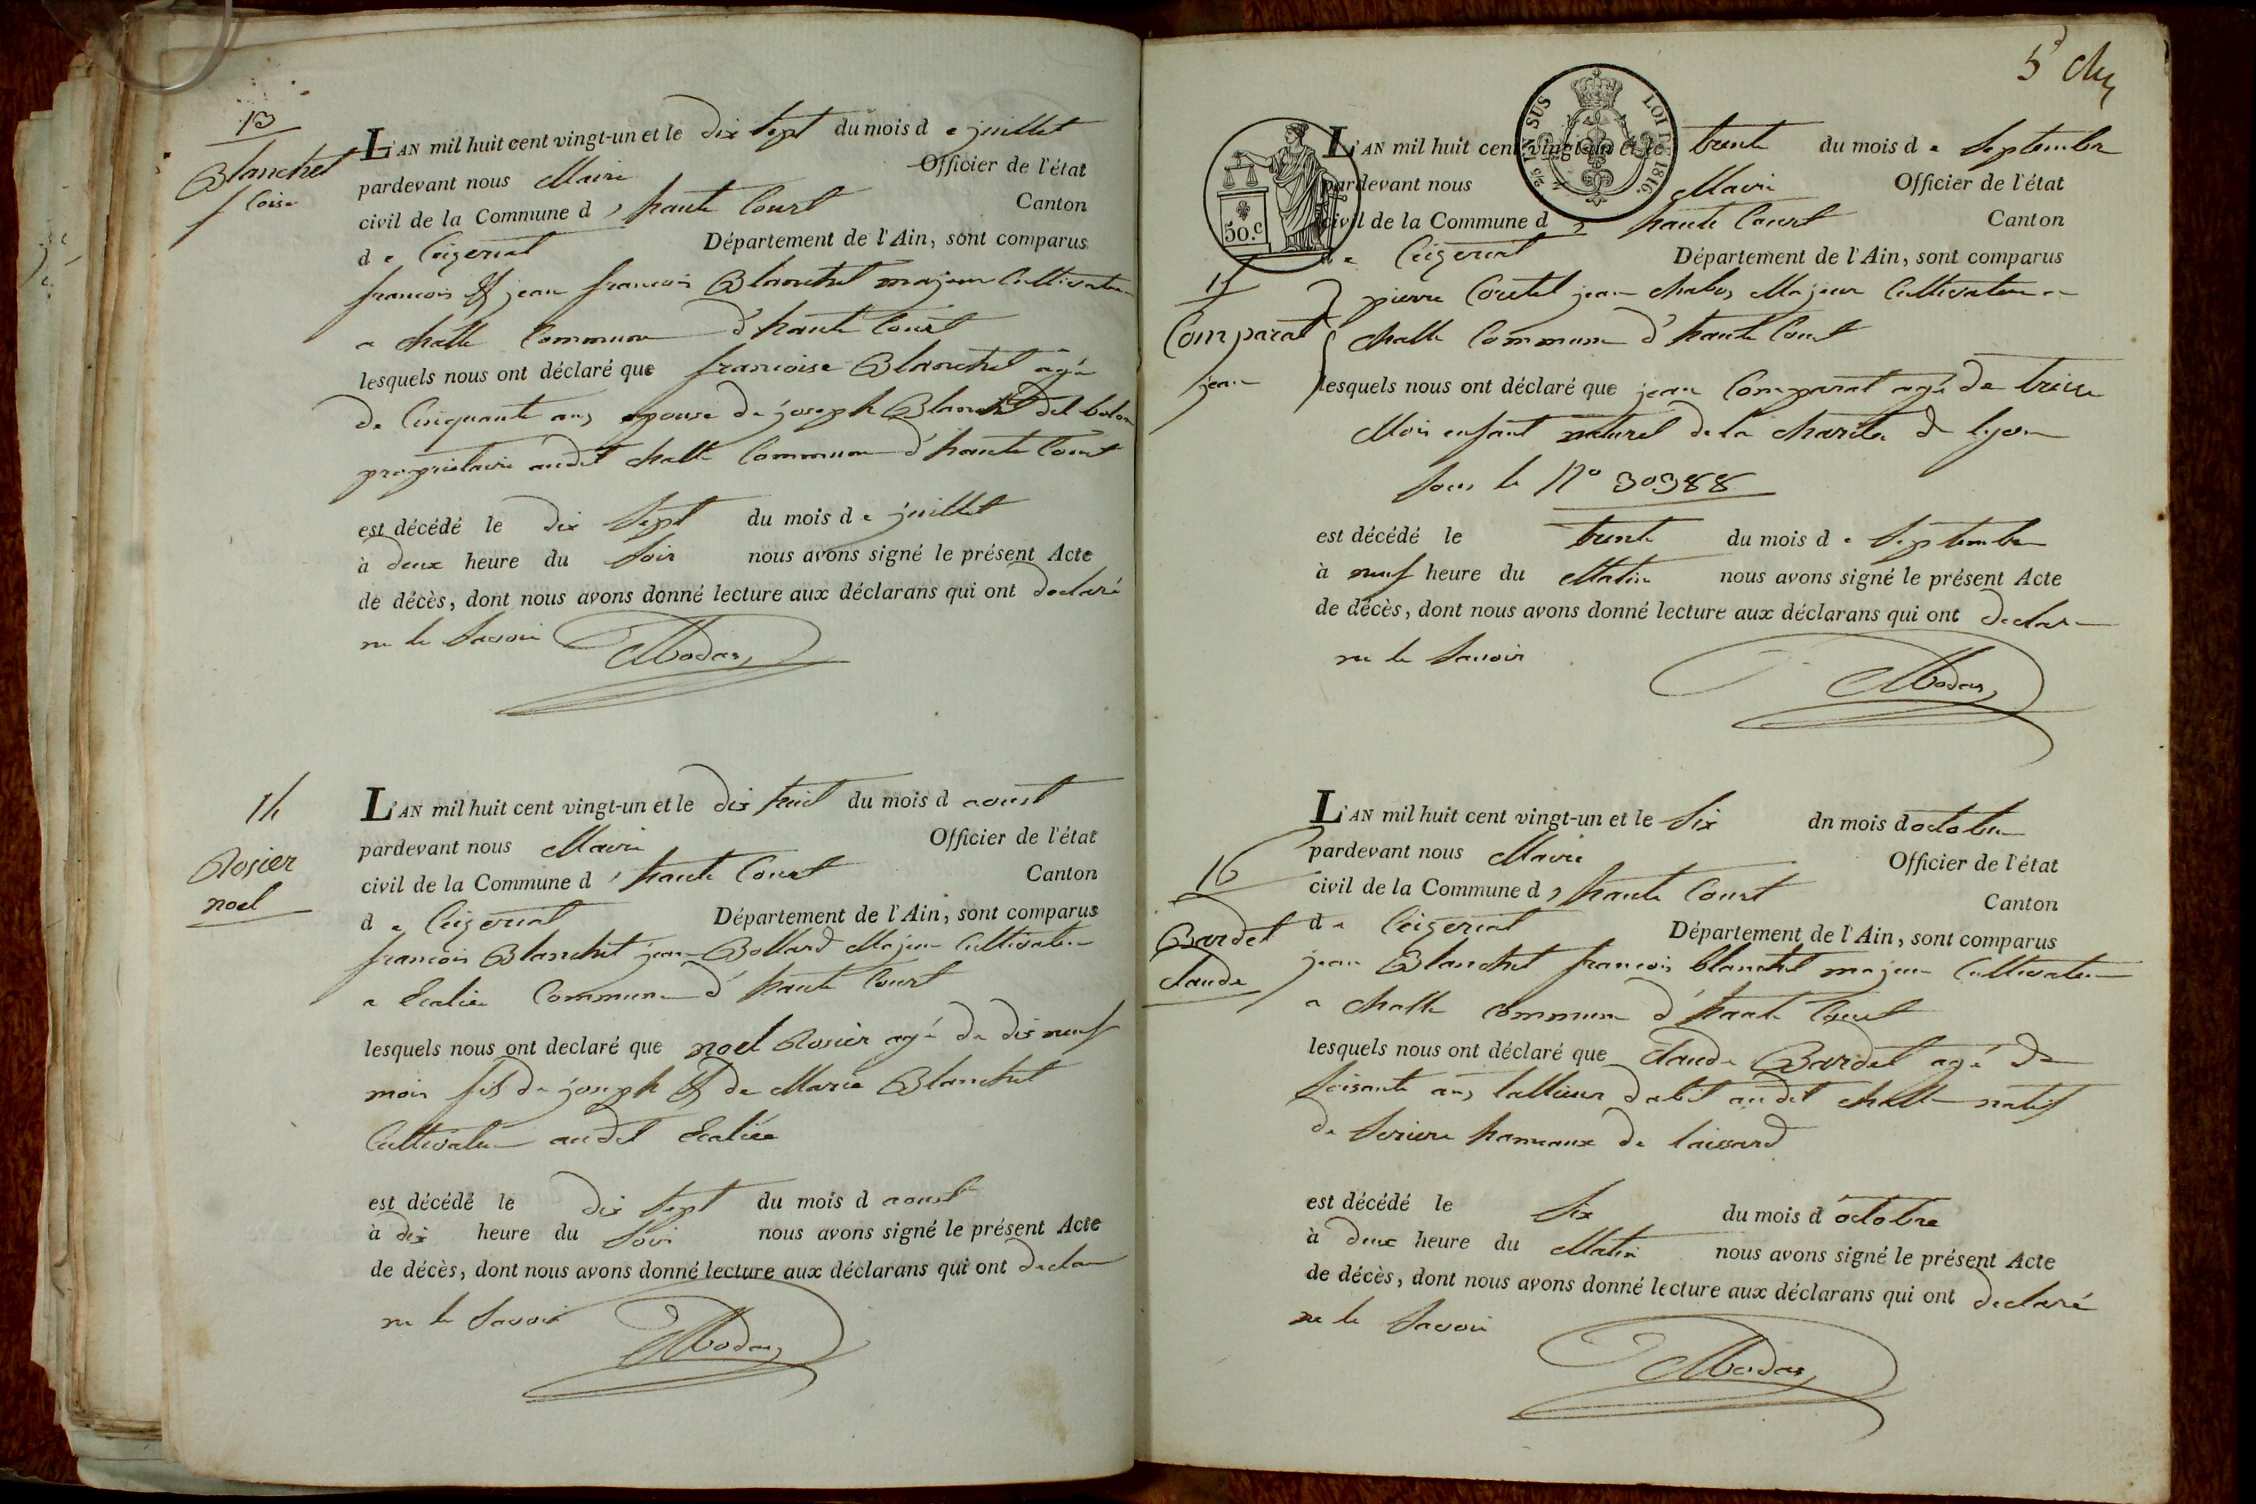 13
Blanchet
f coise
L'AN mil huit cent vingt-un et le dix sept du mois de juillet
pardevant nous Maire Officier de l'état
civil de la Commune d'haute Court Canton
de Ceizeriat Département de l'Ain, sont comparus
francois & jean francois Blanchet majeur Cultivateur
a challe Commune d'haute Court
lesquels nous ont déclaré que francoise Blanchet agé
de Cinquante ans epouse de joseph Blanchet dit
propriétaire audit challe Commune d'haute Court
est décédé le dix Sept du mois de juillet
à deux heure du Soir nous avons signé le présent Acte
de décès, dont nous avons donné lecture aux déclarans qui ont declaré
ne le Savoir
14
Rosier
noel
L'AN mil huit cent vingt-un et le dix huit du mois d aoust
pardevant nous Maire Officier de l'état
civil de la Commune d'haute Court Canton
de Ceizeriat Département de l'Ain, sont comparus
francois Blanchet jean Bollard Majeur Cultivateur
a Commune d'haute Court
lesquels nous ont declaré que noel Rosier agé de dix neuf
mois fils de joseph & de Marie Blanchet
Cultivateur audit
est décédé le dix Sept du mois d aoust
à dix heure du Soir nous avons signé le présent Acte
de décès, dont nous avons donné lecture aux déclarans qui ont
ne le Savoir
5
25 EN SUS LOI DE 1816.
50.c
L'AN mil huit cent vingt-un et le trente du mois de Septembre
pardevant nous Maire Officier de l'état
civil de la Commune d'haute Court Canton
de Ceizeriat Département de l'Ain, sont comparus
15
Comparat
jean
pierre jean Majeur Cultivateur a
challe Commune d'haute Court
lesquels nous ont déclaré que jean Comparat agé de treize
Mois enfant naturel de la charité de lyon
Sous le No 30388
est décédé le trente du mois de Septembre
à neuf heure du Matin nous avons signé le présent Acte
de décès, dont nous avons donné lecture aux déclarans qui ont
ne le Savoir
16
Bardet
claude
L'AN mil huit cent vingt-un et le Six dn mois d octobre
pardevant nous Maire Officier de l'état
civil de la Commune d'haute Court Canton
de Ceizeriat Département de l'Ain, sont comparus
jean Blanchet francois blanchet majeur Cultivateur
a challe commune d'haute Court
lesquels nous ont déclaré que claude Bardet agé de
soisante ans audit challe natif
de hameaux de
est décédé le Six du mois d'octobre
à deux heure du Matin nous avons signé le présent Acte
de décès, dont nous avons donné lecture aux déclarans qui ont declaré
ne le Savoir